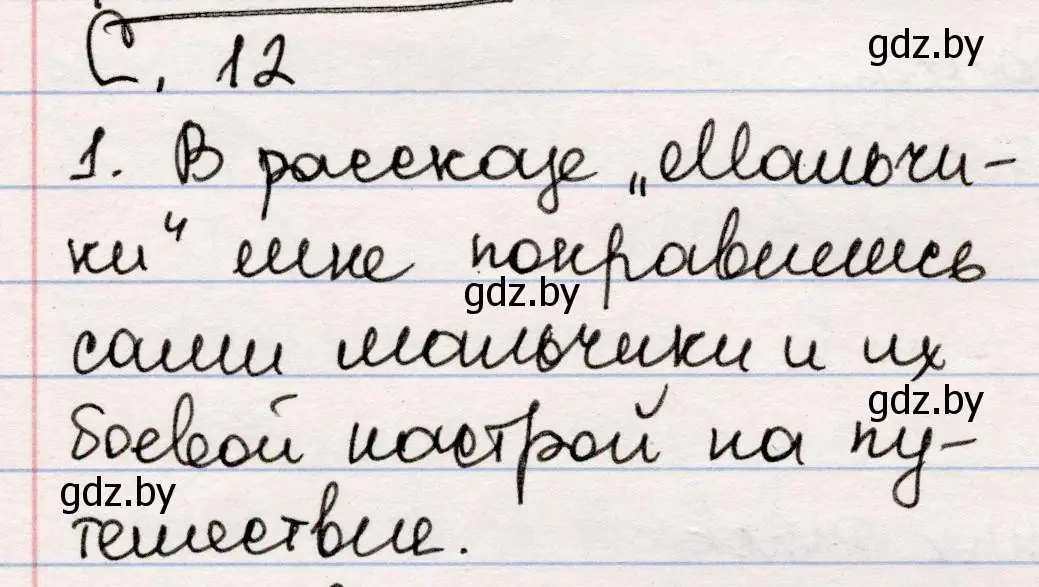 С. 12
gdz.by
1. В рассказе „Мальчи-
ки“ мне понравились
gdz.by
сами мальчики и их
gdz.by
боевой настрой на пу-
gdz.by
тешествие.